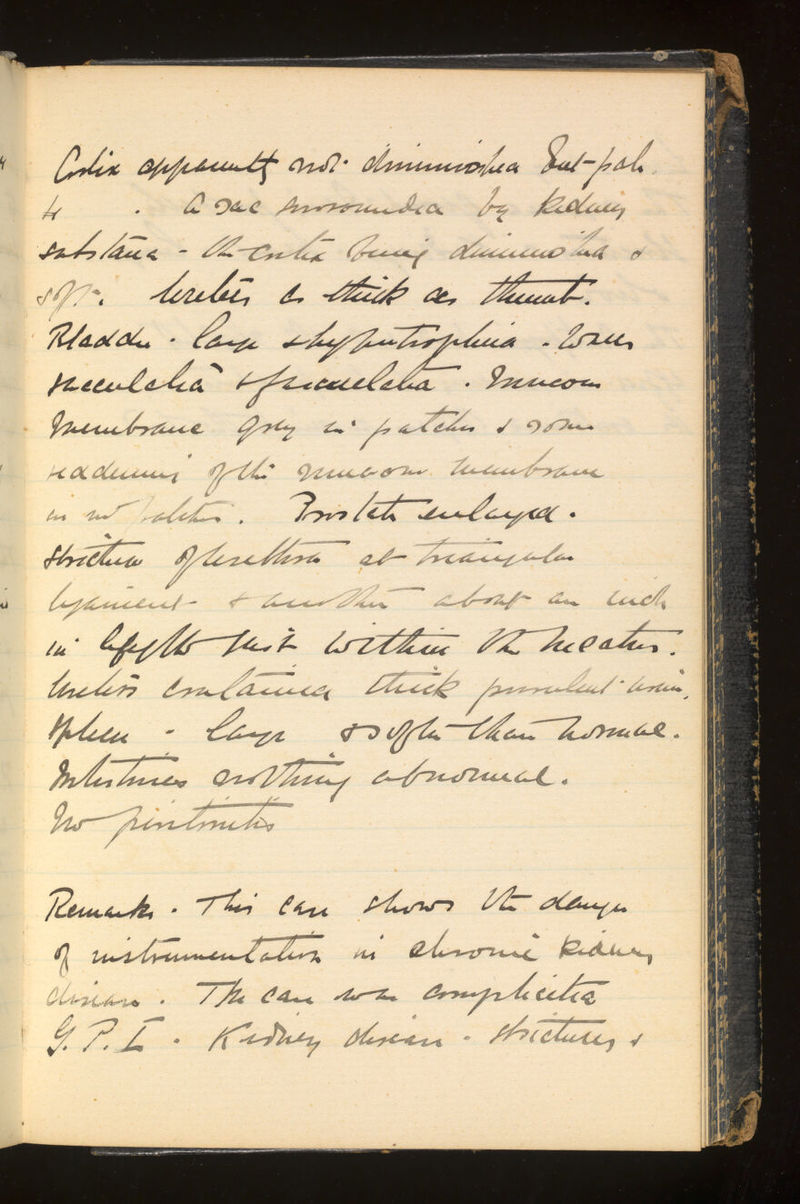 Cortex apparently not diminished but pale.
A sac surrounded by kidney
substance - the cortex being diminished &
soft. Ureters as thick as thumb.
Bladder - large & hypertrophied. Walls
sacculated & fasciculated. Mucous
membrane grey in patches & some
reddening of the mucous membrane
in patches. Prostate enlarged.
Stricture of urethra at triangular
ligament & another about an inch
in length just within the meatus.
Ureters contained thick purulent urine.
Spleen - large & softer than normal.
Intestines nothing abnormal.
No peritonitis
Remarks. This case shows the danger
of instrumentation in chronic kidney
disease. The case was complicated
G.P.I. Kidney disease - strictures &